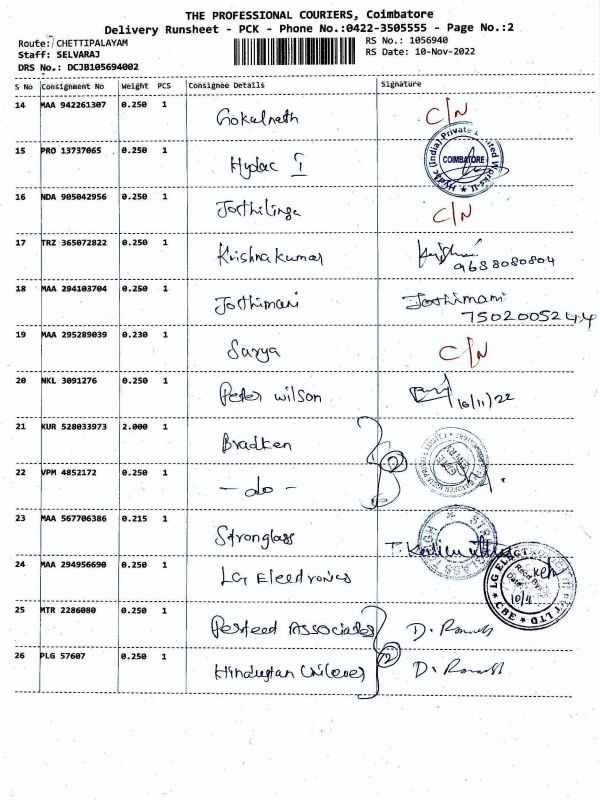 THE PROFESSIONAL COURIERS, Coimbatore
Delivery Runsheet - PCK - Phone No.:0422-3505555 - Page No.:2
Route: CHETTIPALAYAM
RS No.: 1056940
Staff: SELVARAJ
RS Date: 10-Nov-2022
DRS No.: DCJB105694002
S No Consignment No Weight PCS Consignee Details Signature
14 MAA 942261307 0.250 1 Gokulnath C/N
15 PRO 13737065 0.250 1 Hydac I
Hydac (India) Private Limited Works-II
COIMBATORE
16 NDA 905042956 0.250 1 Jothilinga C/N
17 TRZ 365072822 0.250 1 Krishna kumar
9688080804
18 MAA 294103704 0.250 1 Jothimani Jothimani
7502005244
19 MAA 295289039 0.230 1 Surya C/N
20 NKL 3091276 0.250 1 Peter Wilson 10/11/22
21 KUR 528033973 2.000 1 Bradken
2
22 VPM 4852172 0.250 1 - do -
23 MAA 567706386 0.215 1 Stronglass
24 MAA 294956690 0.250 1 LG Electronics
LG ELECT
PVT LTD
CBE
25 MTR 2286080 0.250 1 Perfeed Associates D.
2
26 PLG 57607 0.250 1 Hindustan Unilever D.